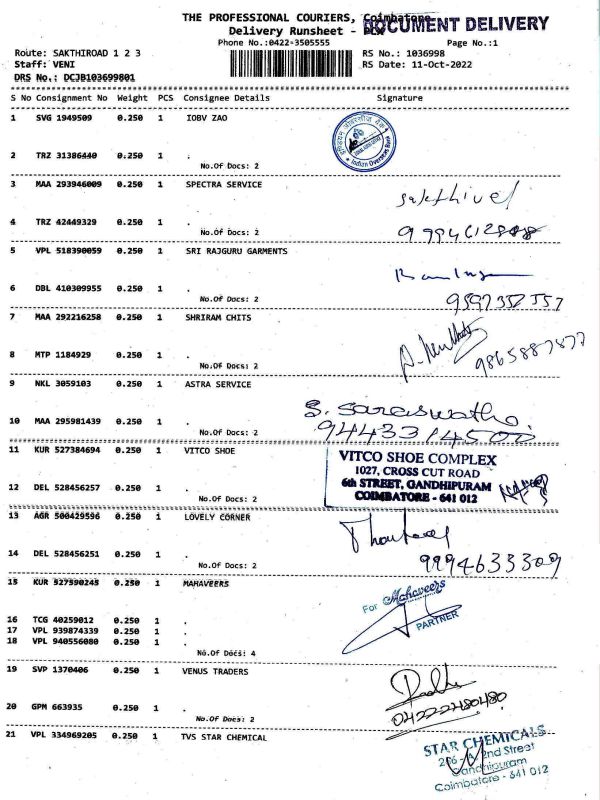 THE PROFESSIONAL COURIERS, Coimbatore
DOCUMENT DELIVERY
Delivery Runsheet -
Phone No.:0422-3505555 Page No.:1
Route: SAKTHIROAD 1 2 3 RS No.: 1036998
Staff: VENI RS Date: 11-Oct-2022
DRS No.: DCJB103699801
S No Consignment No Weight PCS Consignee Details Signature
1 SVG 1949509 0.250 1 IOBV ZAO
Indian Overseas Bank
2 TRZ 31386440 0.250 1 .
No.Of Docs: 2
3 MAA 293946009 0.250 1 SPECTRA SERVICE
sakthivel
4 TRZ 42449329 0.250 1 .
No.Of Docs: 2
5 VPL 518390059 0.250 1 SRI RAJGURU GARMENTS
6 DBL 410309955 0.250 1 .
No.Of Docs: 2 9597352557
7 MAA 292216258 0.250 1 SHRIRAM CHITS
8 MTP 1184929 0.250 1 .
9865887877
No.Of Docs: 2
9 NKL 3059103 0.250 1 ASTRA SERVICE
S. Saraswathi
10 MAA 295981439 0.250 1 .
No.Of Docs: 2 9443314500
11 KUR 527384694 0.250 1 VITCO SHOE
VITCO SHOE COMPLEX
1027, CROSS CUT ROAD
6th STREET, GANDHIPURAM
12 DEL 528456257 0.250 1 .
COIMBATORE - 641 012
No.Of Docs: 2
13 AGR 500429596 0.250 1 LOVELY CORNER
14 DEL 528456251 0.250 1 .
No.Of Docs: 2 9994633309
15 KUR 527390245 0.250 1 MAHAVEERS
For Mahaveers
16 TCG 40259012 0.250 1 .
PARTNER
17 VPL 939874339 0.250 1 .
18 VPL 940556080 0.250 1 .
No.Of Docs: 4
19 SVP 1370406 0.250 1 VENUS TRADERS
20 GPM 663935 0.250 1 .
04222480480
No.Of Docs: 2
21 VPL 334969205 0.250 1 TVS STAR CHEMICAL
STAR CHEMICALS
2nd Street
Gandhipuram
Coimbatore - 641 012